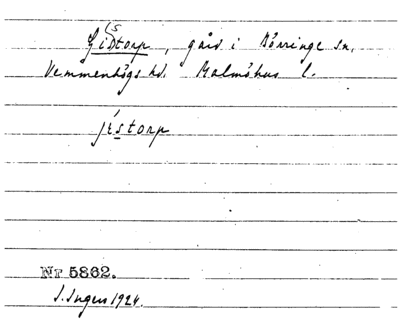 Gidstorp, gård i Börringe sn.
Vemmenhögs hd. Malmöhus l.
jístorp
Nr 5862.
I. Ingers 1924.